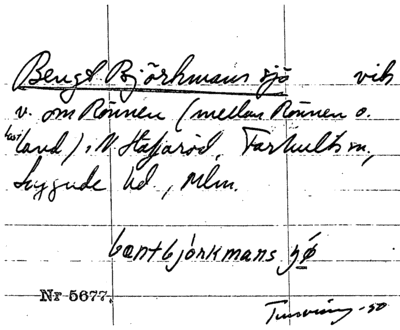 Bengt Björkmans sjö vik
v. om Rönnen (mellan Rönnen o.
fast land), N Stafsaröd, Farhults sn,
Luggude hd, Mlm.
bæntbjörkmans ʃø
Nr 5677.
-50